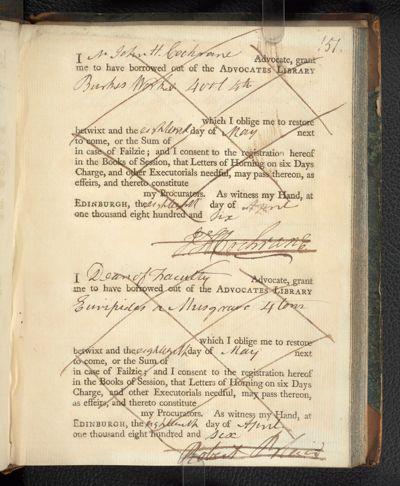 151.
I Mr John H. Cochrane Advocate, grant
me to have borrowed out of the ADVOCATES LIBRARY
Burkes Works 4 vol 4to
which I oblige me to restore
betwixt and the eighteenth day of May next
to come, or the Sum of
in case of Failzie; and I consent to the registration hereof
in the Books of Session, that Letters of Horning on six Days
Charge, and other Executorials needful, may pass thereon, as
effeirs, and thereto constitute
my Procurators. As witness my Hand, at
EDINBURGH, the eighteenth day of April
one thousand eight hundred and six
Cochrane
I Dean of Faculty Advocate, grant
me to have borrowed out of the ADVOCATES LIBRARY
Euripides a Musgrave 4 tom
which I oblige me to restore
betwixt and the eighteenth day of May next
to come, or the Sum of
in case of Failzie; and I consent to the registration hereof
in the Books of Session, that Letters of Horning on six Days
Charge, and other Executorials needful, may pass thereon,
as effeirs, and thereto constitute
my Procurators. As witness my Hand, at
EDINBURGH, the eighteenth day of April
one thousand eight hundred and six
Robert Blair